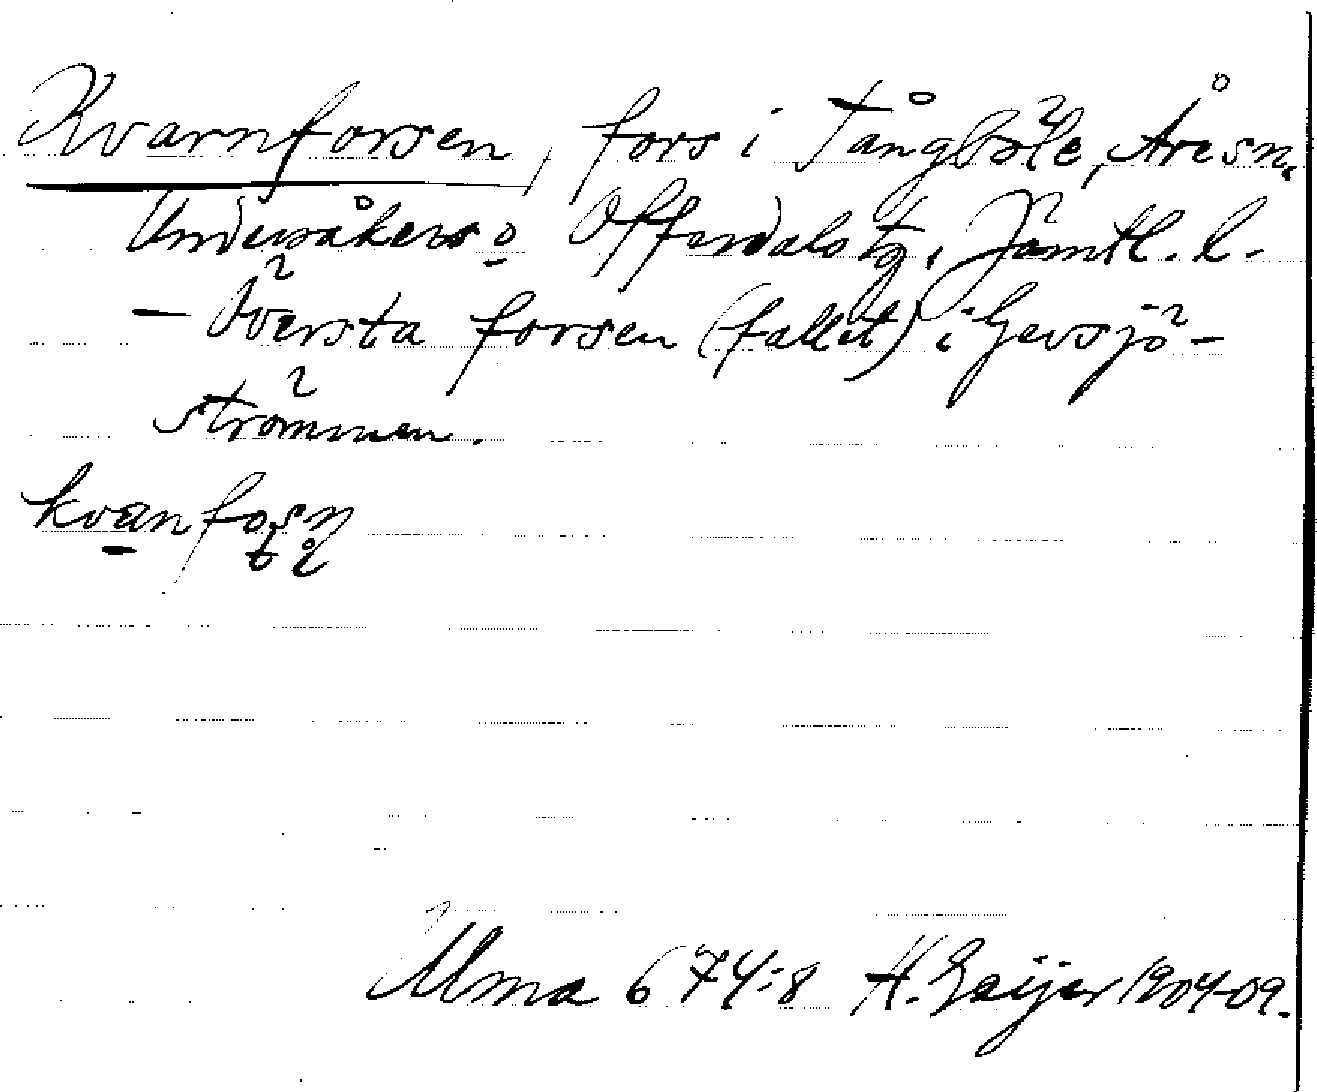 Kvarnforsen, fors i Tångböle, Åre sn,
Undersåkers o Offerdals tg, Jämtl. l.
- Översta forsen (fallet) i Gevsjö-
strömmen.
kvanfosn
Ulma 674:8 H. Geijer 1904-09.